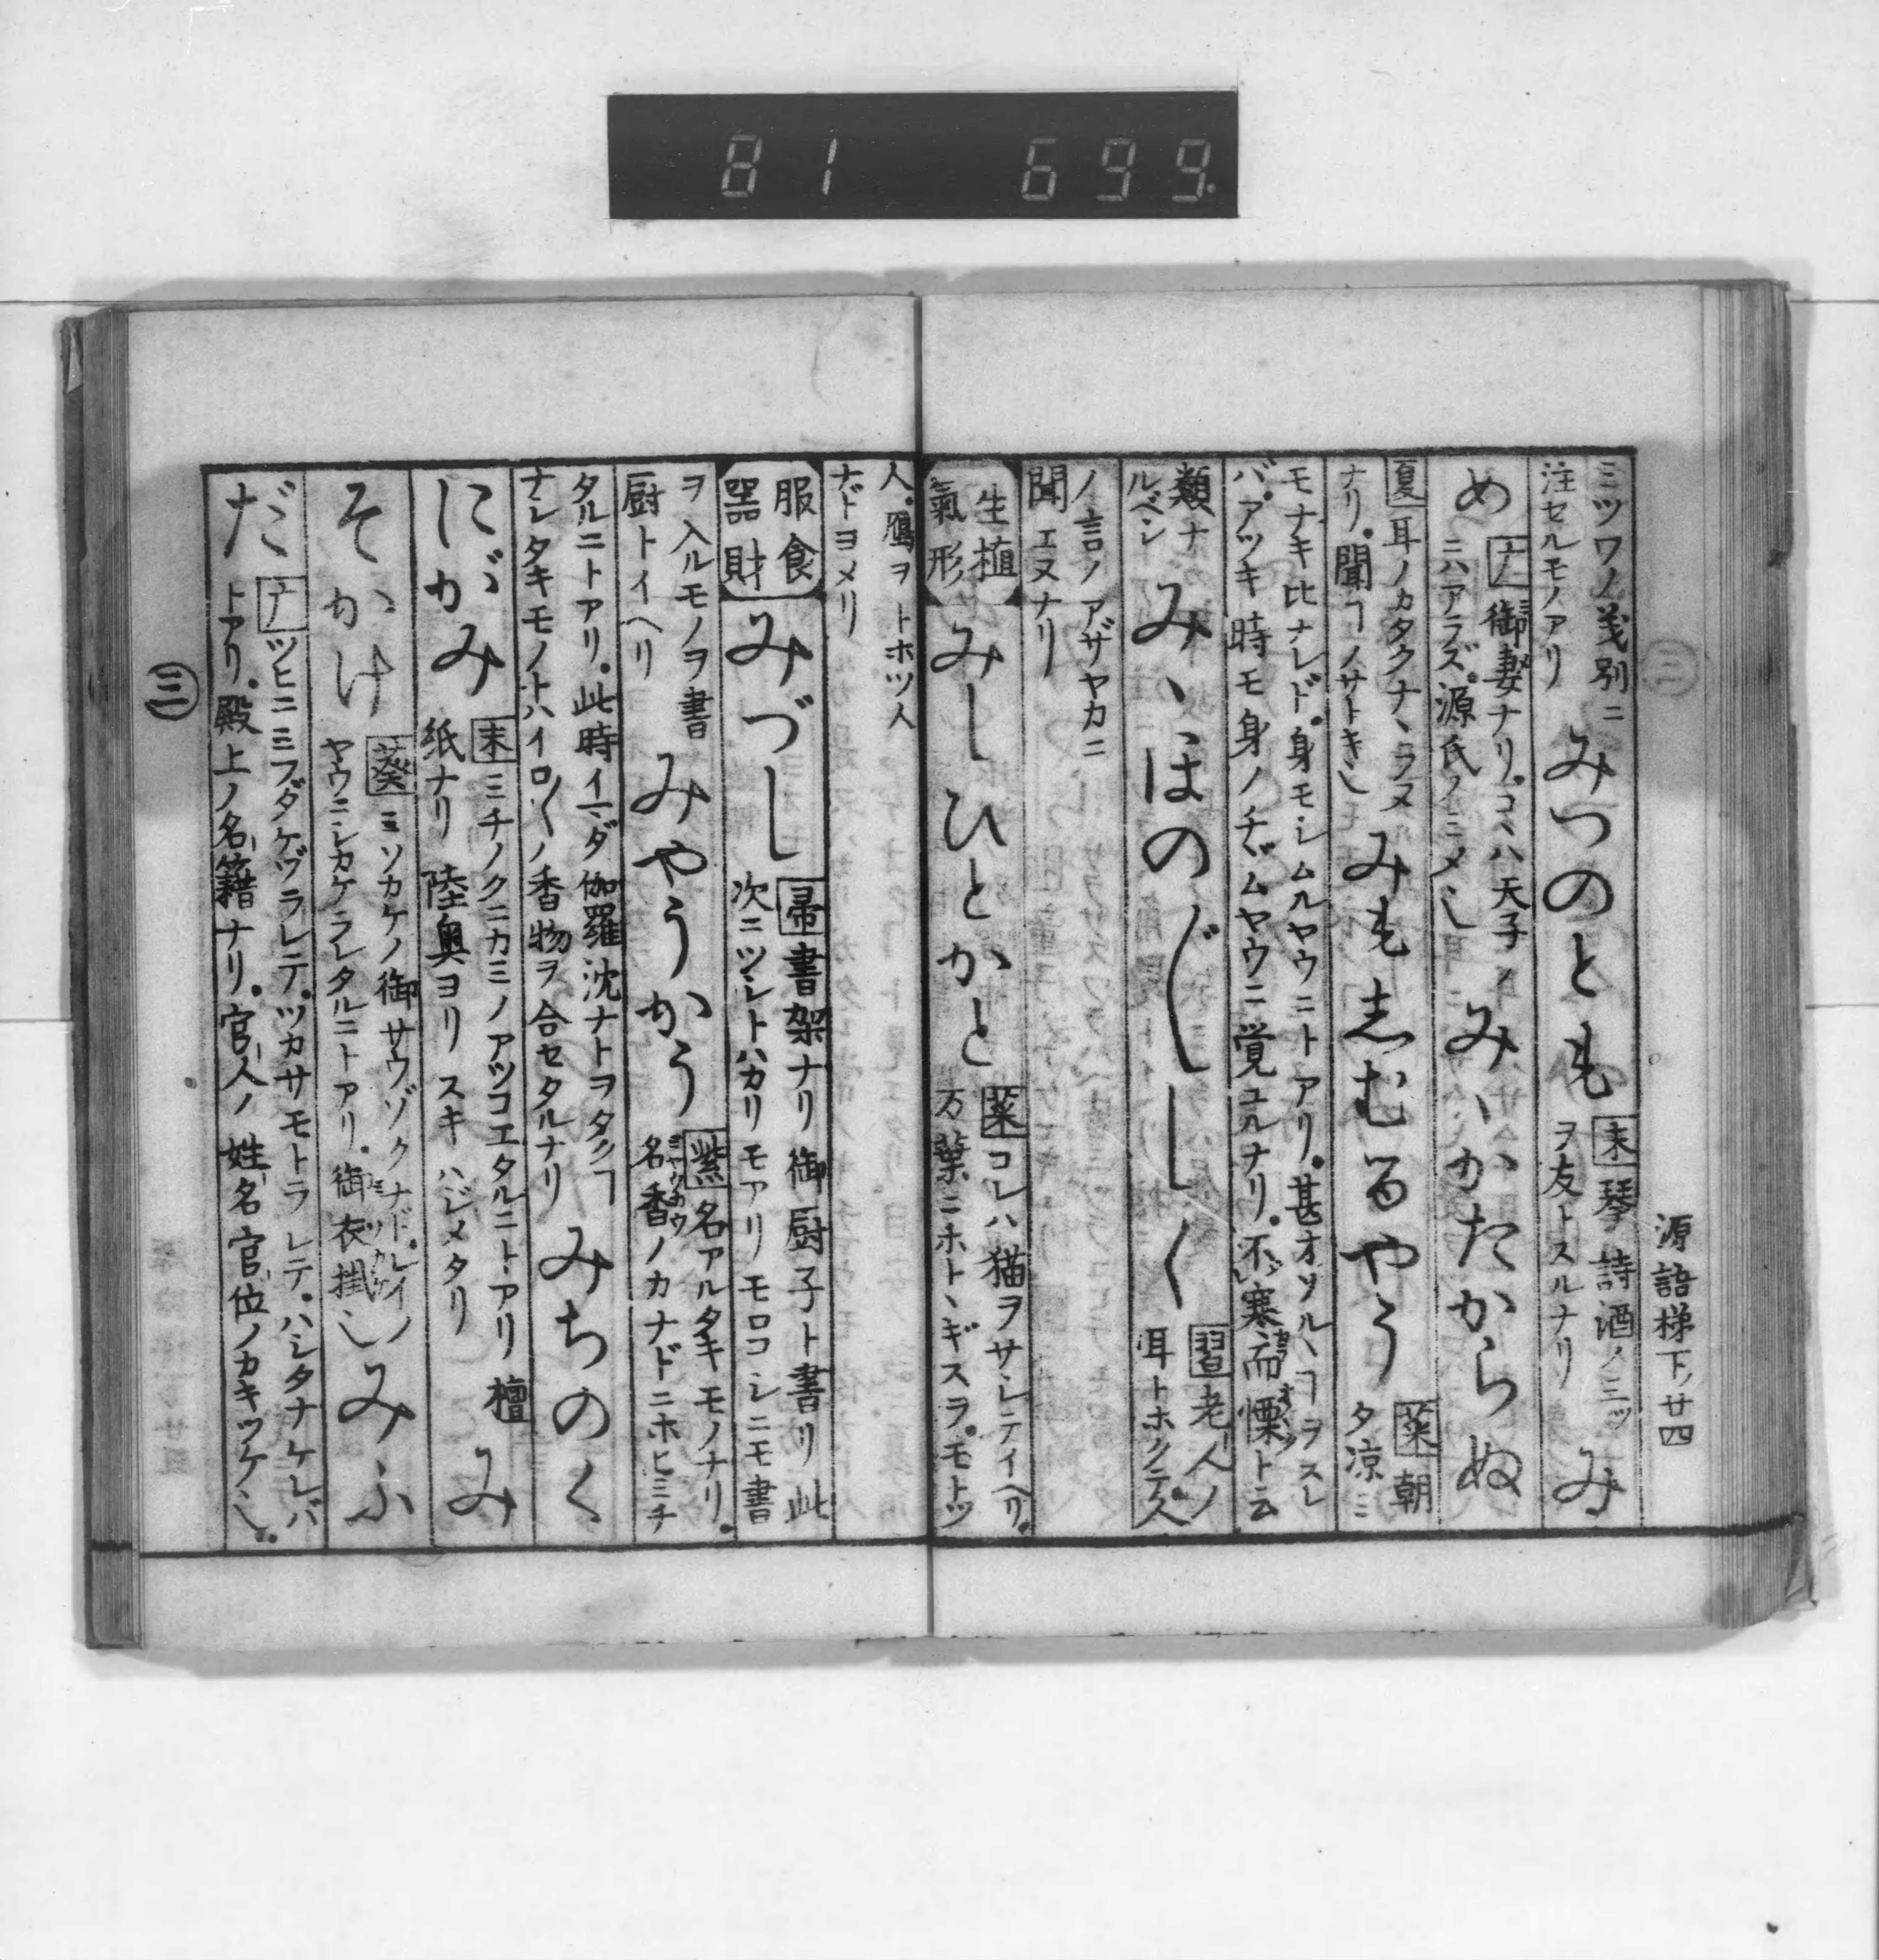 81 699
源語梯下ノ廿四
ミツワノ義別ニ
注セルモノアリ
みつのとも
末 琴詩酒ノ三ツ
ヲ友トスルナリ
み
め
御妻ナリ。コヽハ天子ノ
ニハアラズ。源氏ノミメ也
みゝかたからぬ
夏 耳ノカタクナヽラヌ
ナリ。聞ヿノサトキ也
みも志むるやう
菜 朝
夕涼ミ
モナキ比ナレド。身モシムルヤウニトアリ。甚オソルヽヿヲスレ
バ。アツキ時モ身ノチヾムヤウニ覚ユルナリ。不寒而慄ト云
類ナ
ルベシ
みゝほの〴〵しく
習 老人ノ
耳トホクテ人
ノ言ノアザヤカニ
聞エヌナリ
生植
氣形
みしひとかと
菜 コレハ猫ヲサシテイヘリ。
万葉ニホトヽギスヲ。モトツ
人。鴈ヲトホツ人
ナドヨメリ
服食
器財
みづし
帚 書架ナリ御厨子ト書リ此
次ニツシトハカリモアリモロコシニモ書
ヲ入ルモノヲ書
厨トイヘリ
みやうかう
紫 名アルタキモノナリ。
名香ノカナドニホヒミチ
タルニトアリ。此時イマダ伽羅沈ナトヲタクヿ
ナシタキモノトハイロ〳〵ノ香物ヲ合セタルナリ
みちのく
にがみ
末 ミチノクニカミノアツコエタルニトアリ檀
紙ナリ陸奥ヨリスキハジメタリ
み
そかけ
葵 ミソカケノ御サウゾクナド。レイノ
ヤウニシカケラレタルニトアリ。御衣掛也
みふ
だ
ツヒニミフダケヅラレテ。ツカサモトラレテ。ハシタナケレバ
トアリ。殿上ノ名籍ナリ。官人ノ姓名官位ノカキツケ也。
三